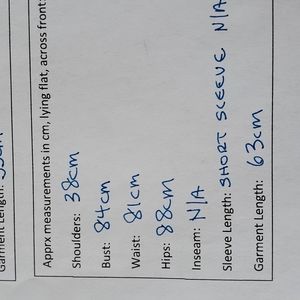 Garment Length:
Apprx measurements in cm, lying flat, across front:
Shoulders: 38cm
Bust: 84cm
Waist: 81cm
Hips: 88cm
Inseam: N/A
Sleeve Length: SHORT SLEEVE N/A
Garment Length: 63cm